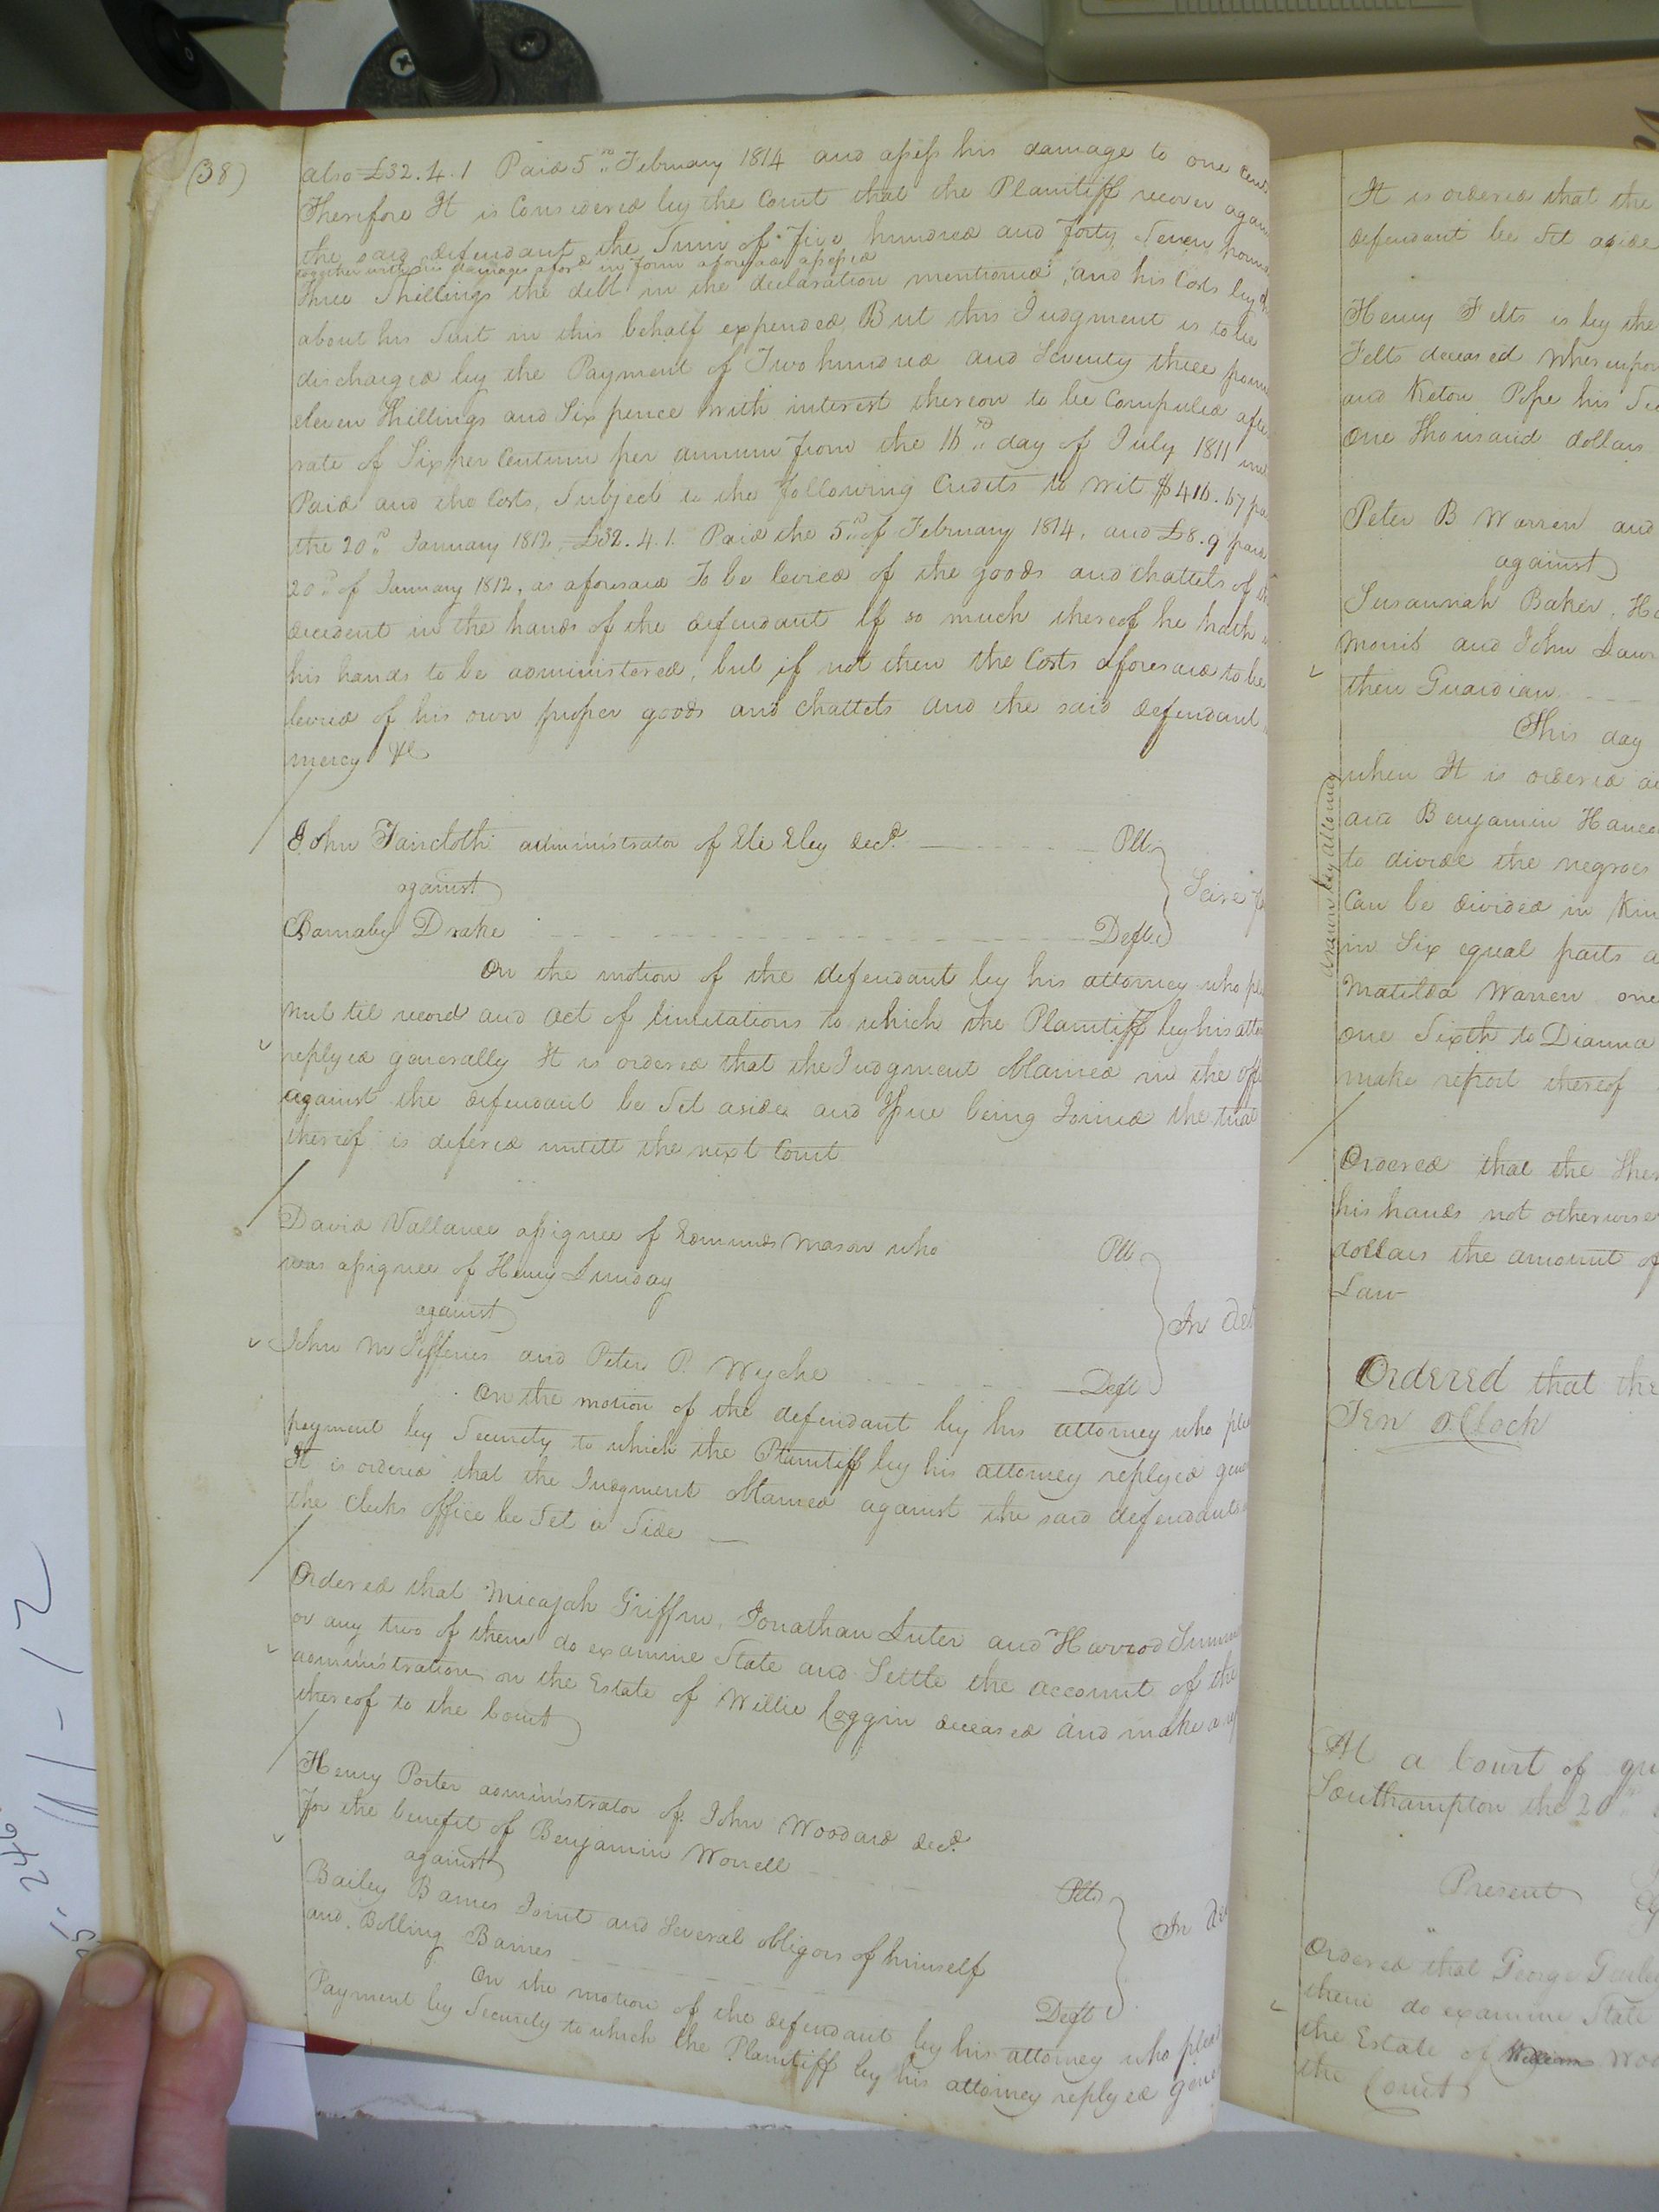 (38)
also £32.4.1 Paid 5th February 1814 and assess his damage to one cent
Therefore It is Considered by the Court that the Plaintiff recover against
the said defendant the Sum of Five hundred and forty Seven pounds
together with the damages afores'd in form aforesaid assessed
three Shillings the debt in the declaration mentioned, and his Costs by
about his Suit in this behalf expended, But this Judgment is to be
discharged by the Payment of Two hundred and Seventy three pounds
eleven Shillings and Six pence with interest thereon to be Computed after
rate of Six per Centum per annum from the 16th day of July 1811
Paid and the Costs, Subject to the following Credits to wit $416.67
the 20th January 1812, £32.4.1. Paid the 5th of February 1814, and £8.9 paid
20th of January 1812, as aforesaid To be levied of the goods and chattels of
decedent in the hands of the defendant If so much thereof he hath
his hands to be administered, but if not then the Costs aforesaid to be
levied of his own proper goods and chattels and the said defendant
mercy &c
John Faircloth administrator of Eli Eley decd. Plt
against
Scire
Barnaby Drake Deft
On the motion of the defendant by his attorney who
nul til record and act of limitations to which the Plaintiff by his
replyed generally It is ordered that the Judgment Obtained in the
against the defendant be Set aside and Issue being Joined the trial
thereof is defered untill the next Court
David Vallance assignee of Edmunds Mason who Plt
was assignee of Henry Lunday
against
In
John M Jefferies and Peter P. Wyche Deft
On the motion of the defendant by his attorney who
payment by Security to which the Plaintiff by his attorney replyed
It is ordered that the Judgment Obtained against the said defendants
the Clerks Office be Set a Side
Ordered that Micajah Griffin, Jonathan Luter and Harrod
or any two of them do examine State and Settle the account of the
administration on the Estate of Willie Coggin deceased and make a
thereof to the Court
Henry Porter administrator of John Woodard decd.
for the benefit of Benjamin Worrell Plt
against
In
Bailey Barnes Joint and Several obligors of himself
and Bolling Barnes Deft
On the motion of the defendant by his attorney who
Payment by Security to which the Plaintiff by his attorney replyed
It is ordered that the
defendant be Set aside
Henry Felts is by the
Felts deceased Whereupon
and Keton Pope his
One thousand dollars
Peter B Warren and
against
Susannah Baker,
Morris and John
their Guardian
This day
when It is ordered
and Benjamin
to divide the negroes
Can be divided in
in Six equal parts
Matilda Warren one
one Sixth to Dianna
make report thereof
Ordered that the
his hands not otherwise
dollars the amount of
Law
Ordered that the
Ten OClock
At a Court of
Southampton the 20th
Present
Ordered that George
them do examine State
the Estate of
the Court
11-12